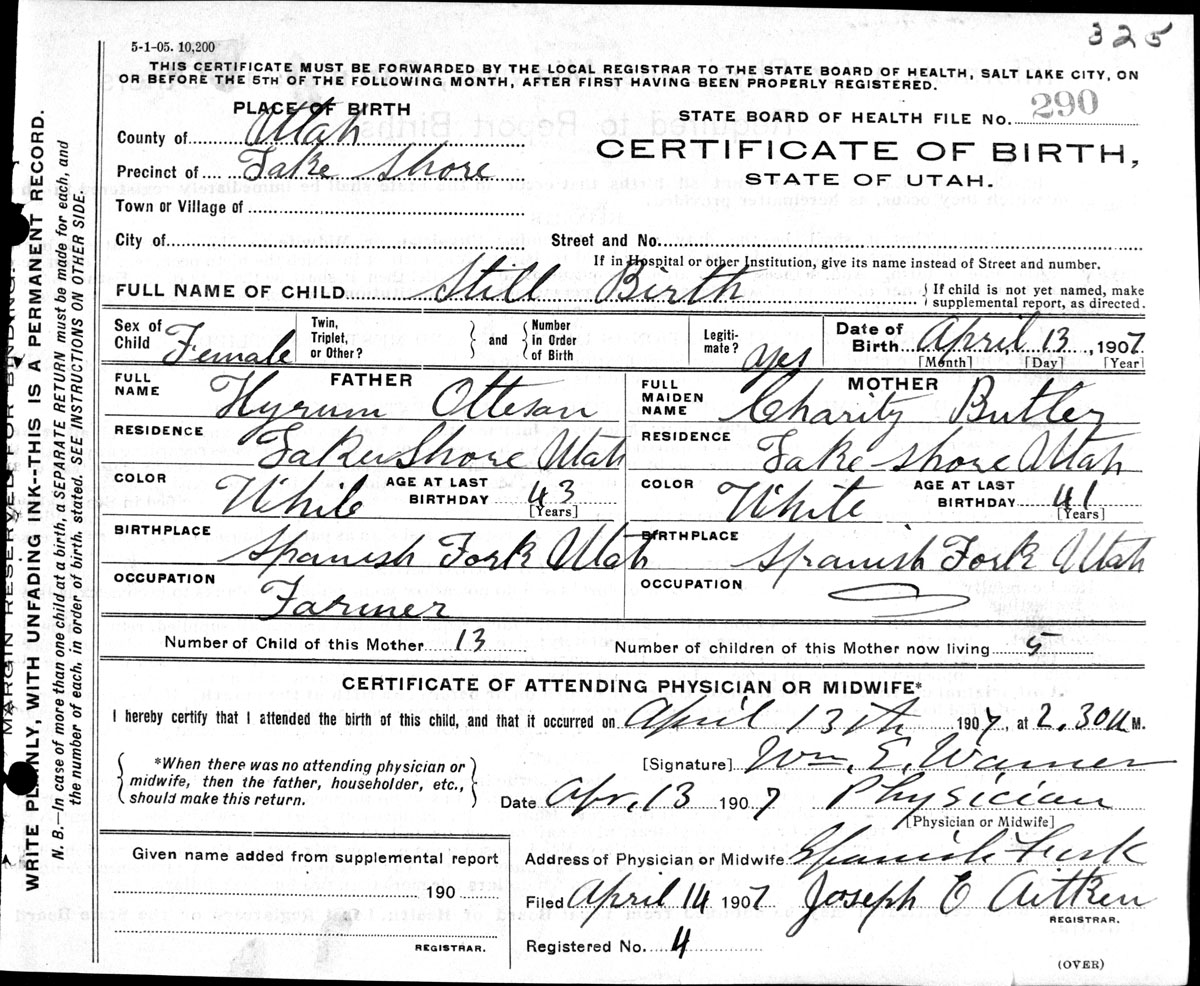 325
5-1-05. 10,200
THIS CERTIFICATE MUST BE FORWARDED BY THE LOCAL REGISTRAR TO THE STATE BOARD OF HEALTH, SALT LAKE CITY, ON
OR BEFORE THE 5TH OF THE FOLLOWING MONTH, AFTER FIRST HAVING BEEN PROPERLY REGISTERED.
PLACE OF BIRTH
STATE BOARD OF HEALTH FILE NO. 290
County of Utah
CERTIFICATE OF BIRTH,
Precinct of Lake Shore
STATE OF UTAH.
Town or Village of
City of Street and No.
If in Hospital or other Institution, give its name instead of Street and number.
FULL NAME OF CHILD Still Birth { If child is not yet named, make
supplemental report, as directed.
Sex of Child Female Twin, Triplet, or Other? } and { Number in Order of Birth Legiti-mate? Yes Date of Birth April 13, 1907
[Month] [Day] [Year]
FATHER MOTHER
FULL NAME Hyrum Otteson FULL MAIDEN NAME Charity Butler
RESIDENCE Lake Shore Utah RESIDENCE Lake-Shore Utah
COLOR White AGE AT LAST BIRTHDAY 43 [Years] COLOR White AGE AT LAST BIRTHDAY 41 [Years]
BIRTHPLACE Spanish Fork Utah BIRTHPLACE Spanish Fork Utah
OCCUPATION Farmer OCCUPATION
Number of Child of this Mother 13 Number of children of this Mother now living 5
CERTIFICATE OF ATTENDING PHYSICIAN OR MIDWIFE*
I hereby certify that I attended the birth of this child, and that it occurred on April 13th 1907, at 2.30 a M.
*When there was no attending physician or
midwife, then the father, householder, etc.,
should make this return.
[Signature] Wm. E. Warner
Date Apr. 13 1907 Physician
[Physician or Midwife]
Given name added from supplemental report
190
REGISTRAR.
Address of Physician or Midwife Spanish Fork
Filed April 14 1907 Joseph E Aitken
REGISTRAR.
Registered No. 4
(OVER)
MARGIN RESERVED FOR BINDING.
WRITE PLAINLY, WITH UNFADING INK--THIS IS A PERMANENT RECORD.
N. B.—In case of more than one child at a birth, a SEPARATE RETURN must be made for each, and
the number of each, in order of birth, stated. SEE INSTRUCTIONS ON OTHER SIDE.